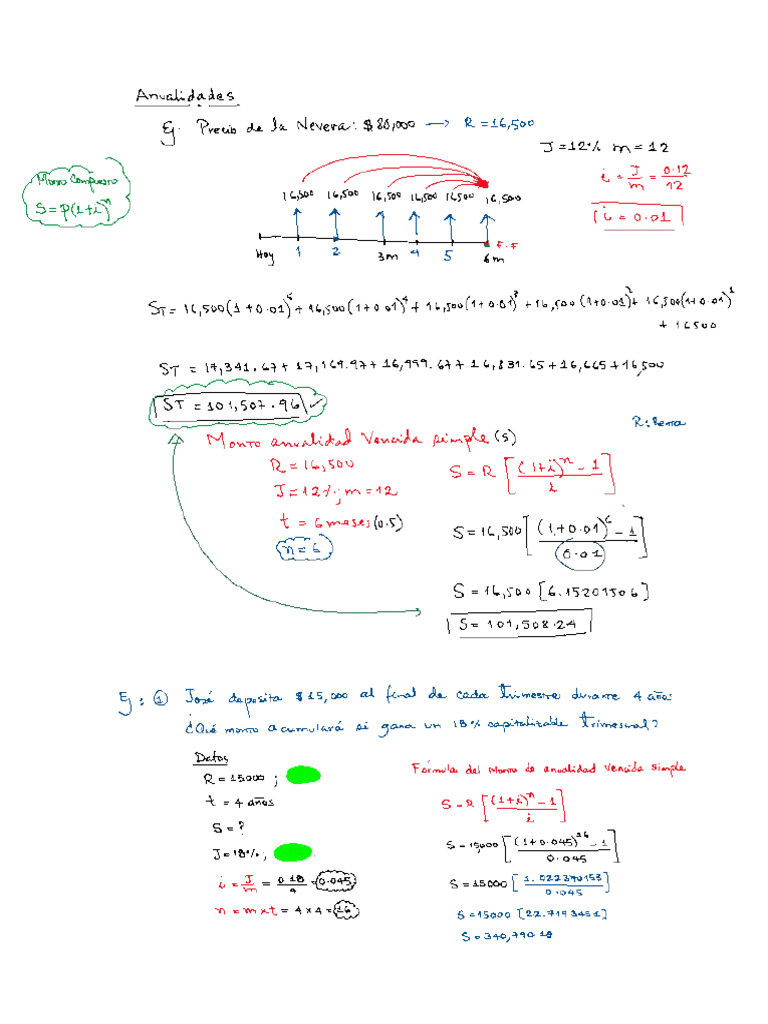 Anualidades
Eg. Precio de la Nevera: $80,000 → R = 16,500
J = 12% m = 12
Monto Compuesto
S = P(1+i)^n
i = J/m = 0.12/12
i = 0.01
16,500 16,500 16,500 16,500 16500 16,500
F.F
Hoy 1 2 3m 4 5 6m
ST = 16,500(1+0.01)^5 + 16,500(1+0.01)^4 + 16,500(1+0.01)^3 + 16,500(1+0.01)^2 + 16,500(1+0.01)^1
+ 16500
ST = 17,341.67 + 17,169.97 + 16,999.67 + 16,831.65 + 16,665 + 16,500
ST = 101,507.96 ✓
R: Renta
Monto anualidad Vencida simple (S)
R = 16,500
J = 12%; m = 12
t = 6 meses (0.5)
n = 6
S = R [ (1+i)^n - 1 / i ]
S = 16,500 [ (1+0.01)^6 - 1 / 0.01 ]
S = 16,500 [6.15201506]
S = 101,508.24
Eg: ① José deposita $15,000 al final de cada Trimestre durante 4 años.
¿Qué monto acumulará si gana un 18% capitalizable Trimestral?
Datos
R = 15000 ;
t = 4 años
S = ?
J = 18% ;
i = J/m = 0.18/4 = 0.045
n = m x t = 4 x 4 = 16
Fórmula del Monto de anualidad Vencida simple
S = R [ (1+i)^n - 1 / i ]
S = 15,000 [ (1+0.045)^16 - 1 / 0.045 ]
S = 15000 [ 1.022370153 / 0.045 ]
S = 15000 [22.7193451]
S = 340,790.18